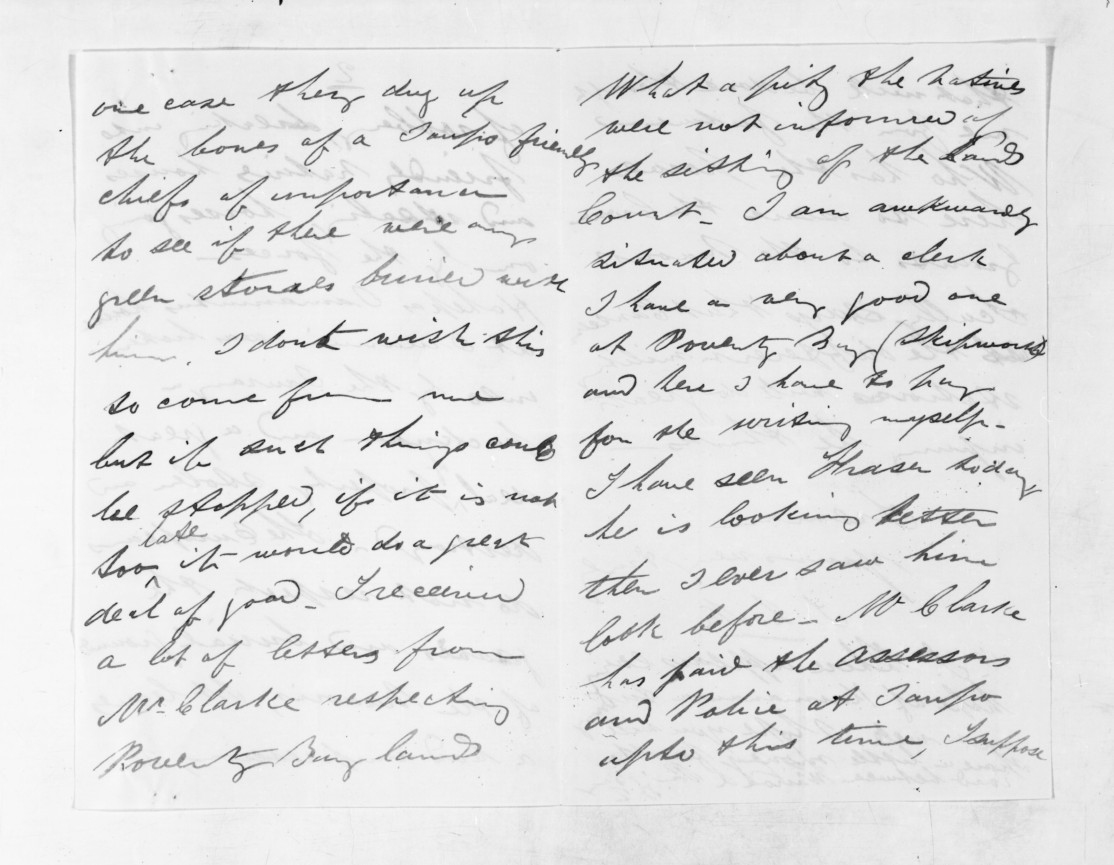 one case they dug up
the bones of a Taupo friendly
chiefs of importance
to see if there were any
green stones buried with
him. I dont wish this
to come from me
but if such things could
be stopped, if it is not
late
too it would do a great
deal of good – I received
a lot of letters from
Mr. Clarke respecting
Poverty Bay lands
What a pity the natives
were not informed of
the sitting of the Lands
Court – I am awkwardly
situated about a clerk
I have a very good one
at Poverty Bay (Skipworth)
and here I have to pay
for the writing myself –
I have seen Fraser today
he is looking better
then I ever saw him
look before – Mr Clarke
has paid the assessors
and Police at Taupo
upto this time, I suppose